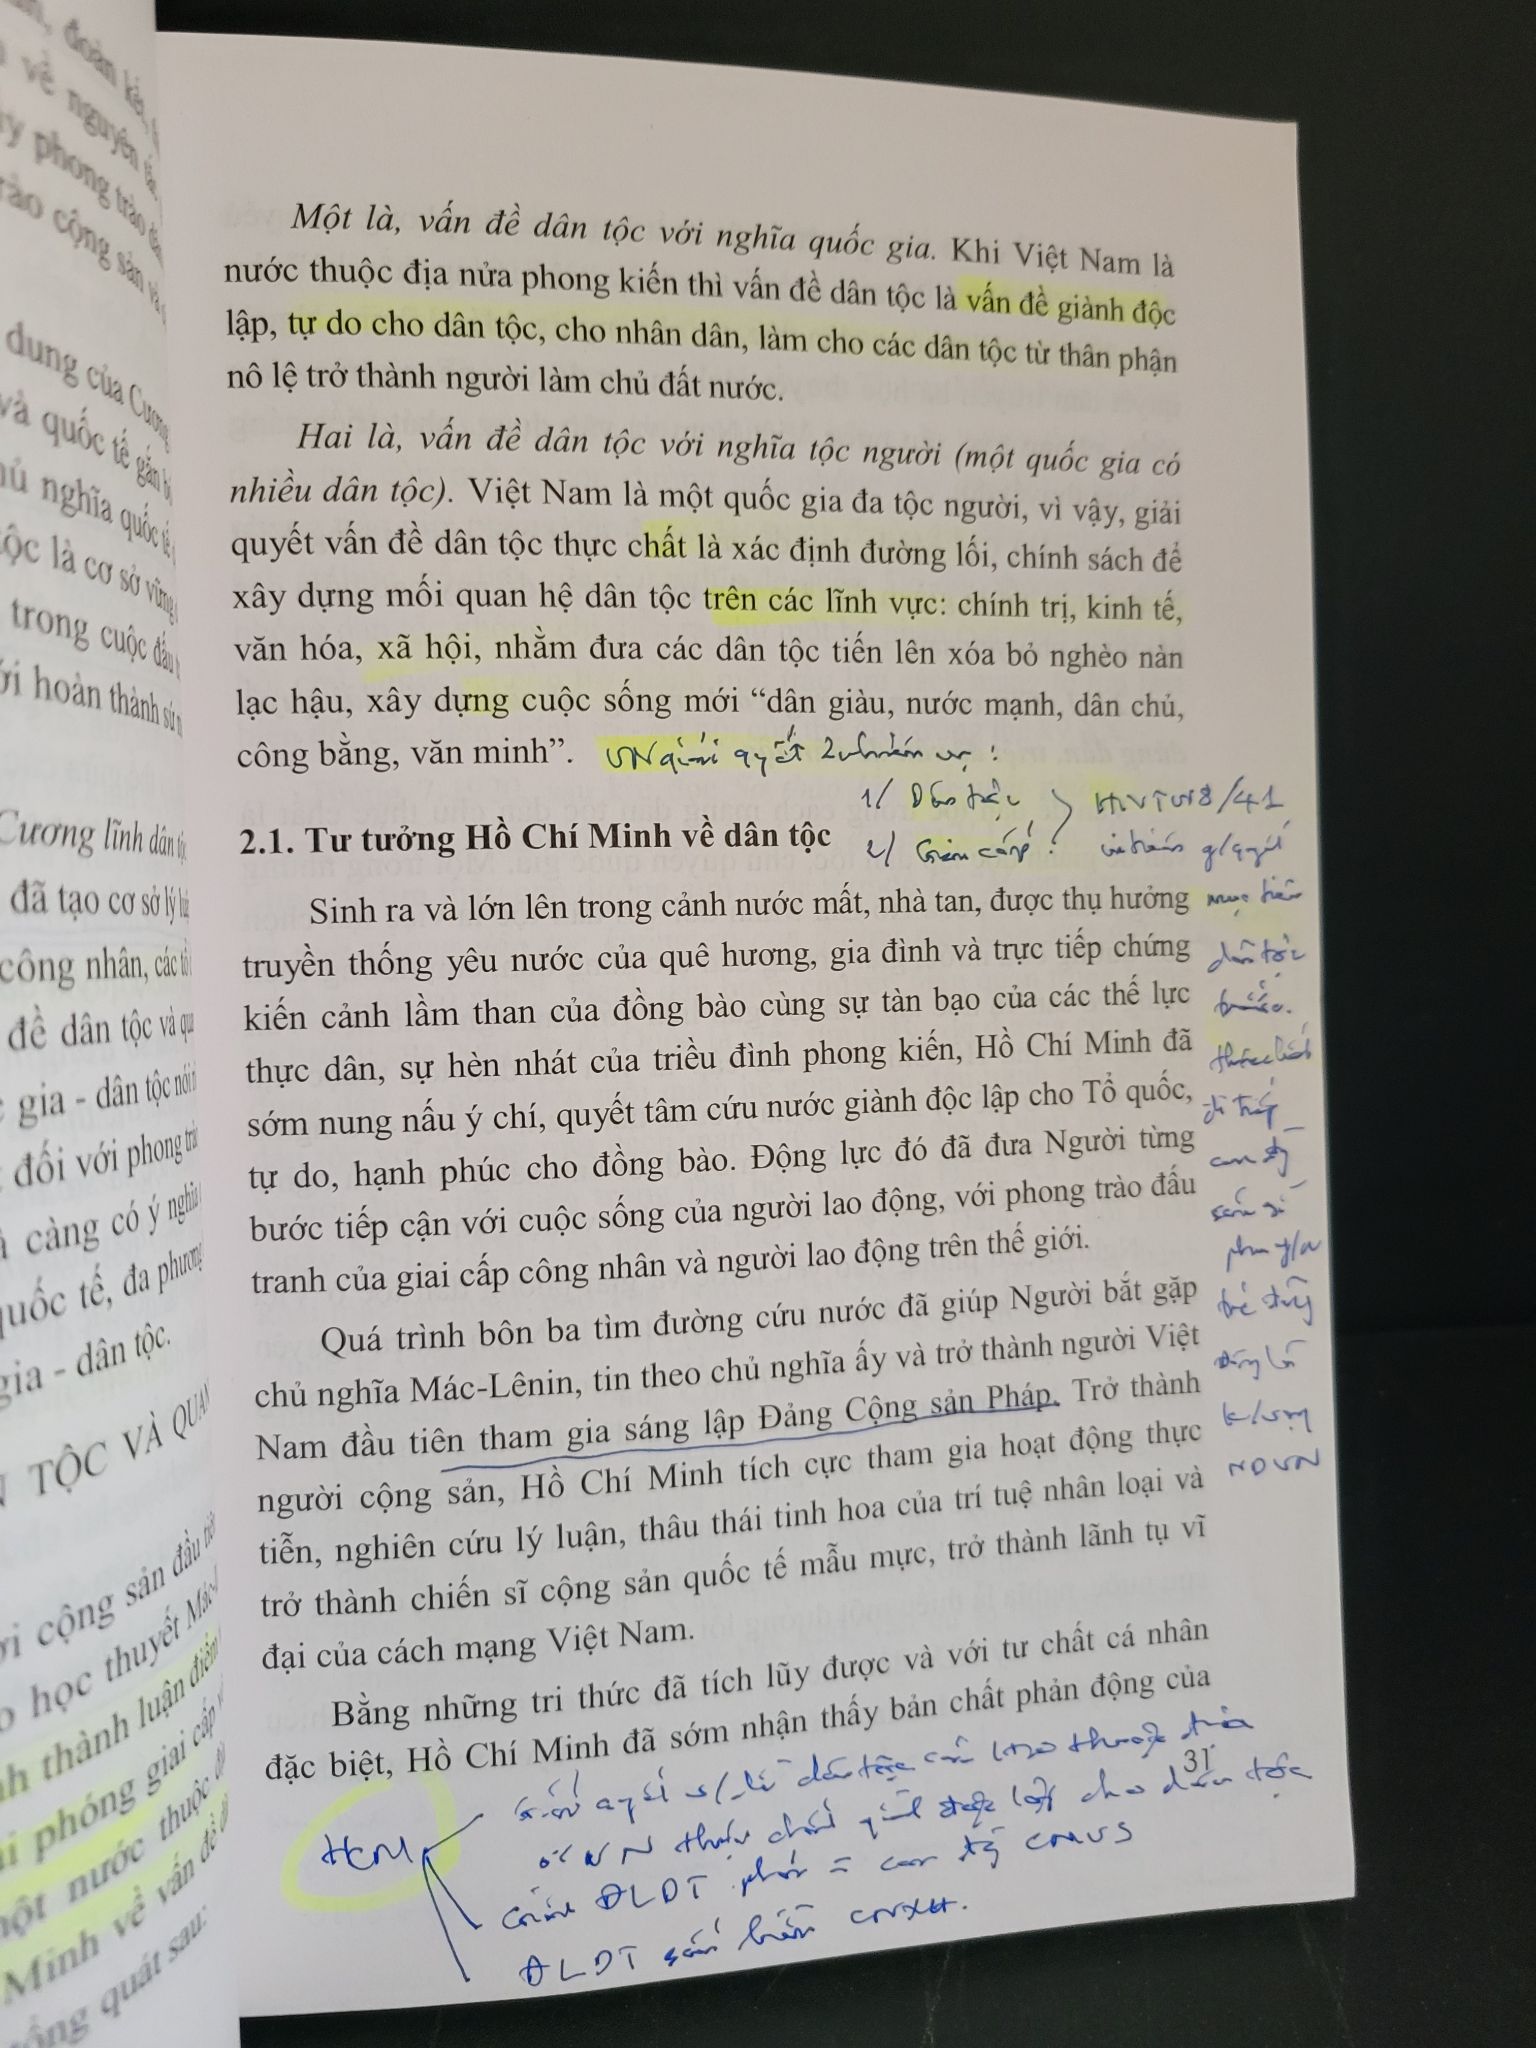 đoàn kết,
về nguyên tắc
phong trào
cộng sản và
dung của Cương
và quốc tế gắn bó
nghĩa quốc tế
là cơ sở vững
trong cuộc đấu
hoàn thành
Cương lĩnh dân
đã tạo cơ sở lý
công nhân, các
đề dân tộc và
gia - dân tộc nói
đối với phong
càng có ý nghĩa
quốc tế, đa phương
gia - dân tộc.
TỘC VÀ QUAN
cộng sản đầu
học thuyết Mác-
thành luận điểm
phóng giai cấp
một nước thuộc
Minh về vấn đề
tổng quát sau:
Một là, vấn đề dân tộc với nghĩa quốc gia. Khi Việt Nam là
nước thuộc địa nửa phong kiến thì vấn đề dân tộc là vấn đề giành độc
lập, tự do cho dân tộc, cho nhân dân, làm cho các dân tộc từ thân phận
nô lệ trở thành người làm chủ đất nước.
Hai là, vấn đề dân tộc với nghĩa tộc người (một quốc gia có
nhiều dân tộc). Việt Nam là một quốc gia đa tộc người, vì vậy, giải
quyết vấn đề dân tộc thực chất là xác định đường lối, chính sách để
xây dựng mối quan hệ dân tộc trên các lĩnh vực: chính trị, kinh tế,
văn hóa, xã hội, nhằm đưa các dân tộc tiến lên xóa bỏ nghèo nàn
lạc hậu, xây dựng cuộc sống mới “dân giàu, nước mạnh, dân chủ,
công bằng, văn minh”. VN giải quyết 2 nhiệm vụ:
1/ Dân tộc
2/ Giai cấp
2.1. Tư tưởng Hồ Chí Minh về dân tộc
Sinh ra và lớn lên trong cảnh nước mất, nhà tan, được thụ hưởng
truyền thống yêu nước của quê hương, gia đình và trực tiếp chứng
kiến cảnh lầm than của đồng bào cùng sự tàn bạo của các thế lực
thực dân, sự hèn nhát của triều đình phong kiến, Hồ Chí Minh đã
sớm nung nấu ý chí, quyết tâm cứu nước giành độc lập cho Tổ quốc,
tự do, hạnh phúc cho đồng bào. Động lực đó đã đưa Người từng
bước tiếp cận với cuộc sống của người lao động, với phong trào đấu
tranh của giai cấp công nhân và người lao động trên thế giới.
Quá trình bôn ba tìm đường cứu nước đã giúp Người bắt gặp
chủ nghĩa Mác-Lênin, tin theo chủ nghĩa ấy và trở thành người Việt
Nam đầu tiên tham gia sáng lập Đảng Cộng sản Pháp. Trở thành
người cộng sản, Hồ Chí Minh tích cực tham gia hoạt động thực
tiễn, nghiên cứu lý luận, thâu thái tinh hoa của trí tuệ nhân loại và
trở thành chiến sĩ cộng sản quốc tế mẫu mực, trở thành lãnh tụ vĩ
đại của cách mạng Việt Nam.
Bằng những tri thức đã tích lũy được và với tư chất cá nhân
đặc biệt, Hồ Chí Minh đã sớm nhận thấy bản chất phản động của
31
mục tiêu
dân tộc
NDVN
HCM
ĐLDT = con
ĐLDT gắn liền CNXH.